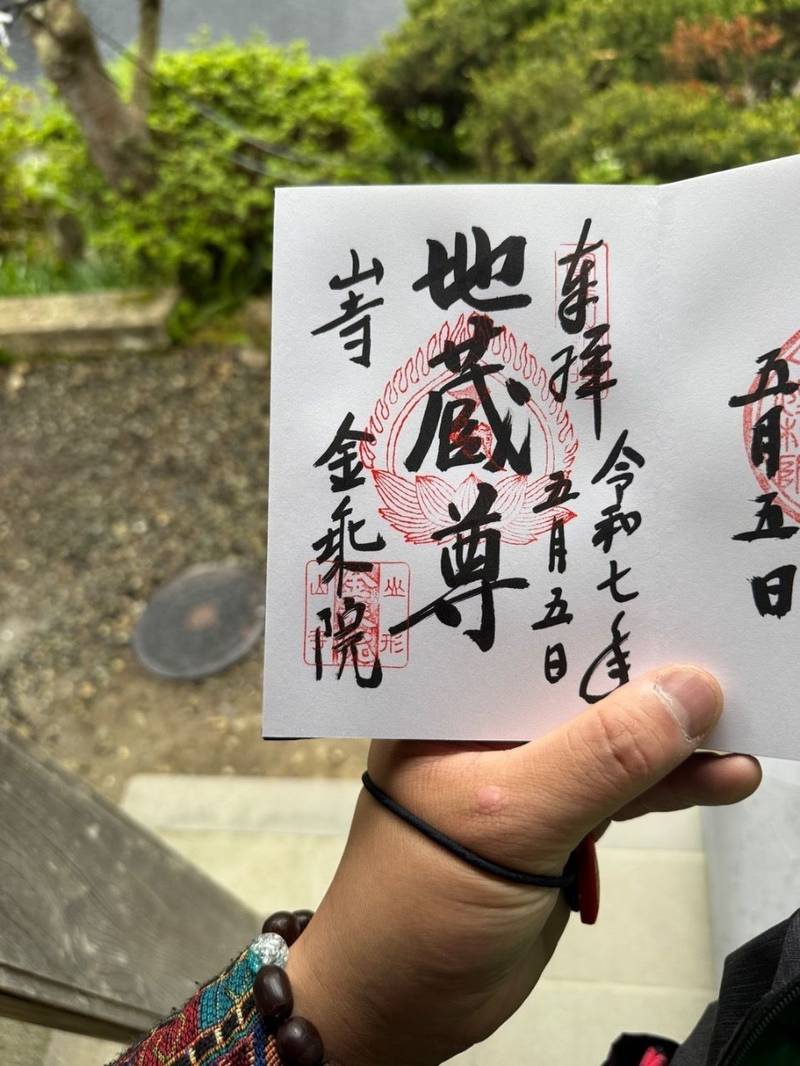 五月五日
奉拝
令和七年
五月五日
地蔵尊
山寺
金乘院
山寺
山形